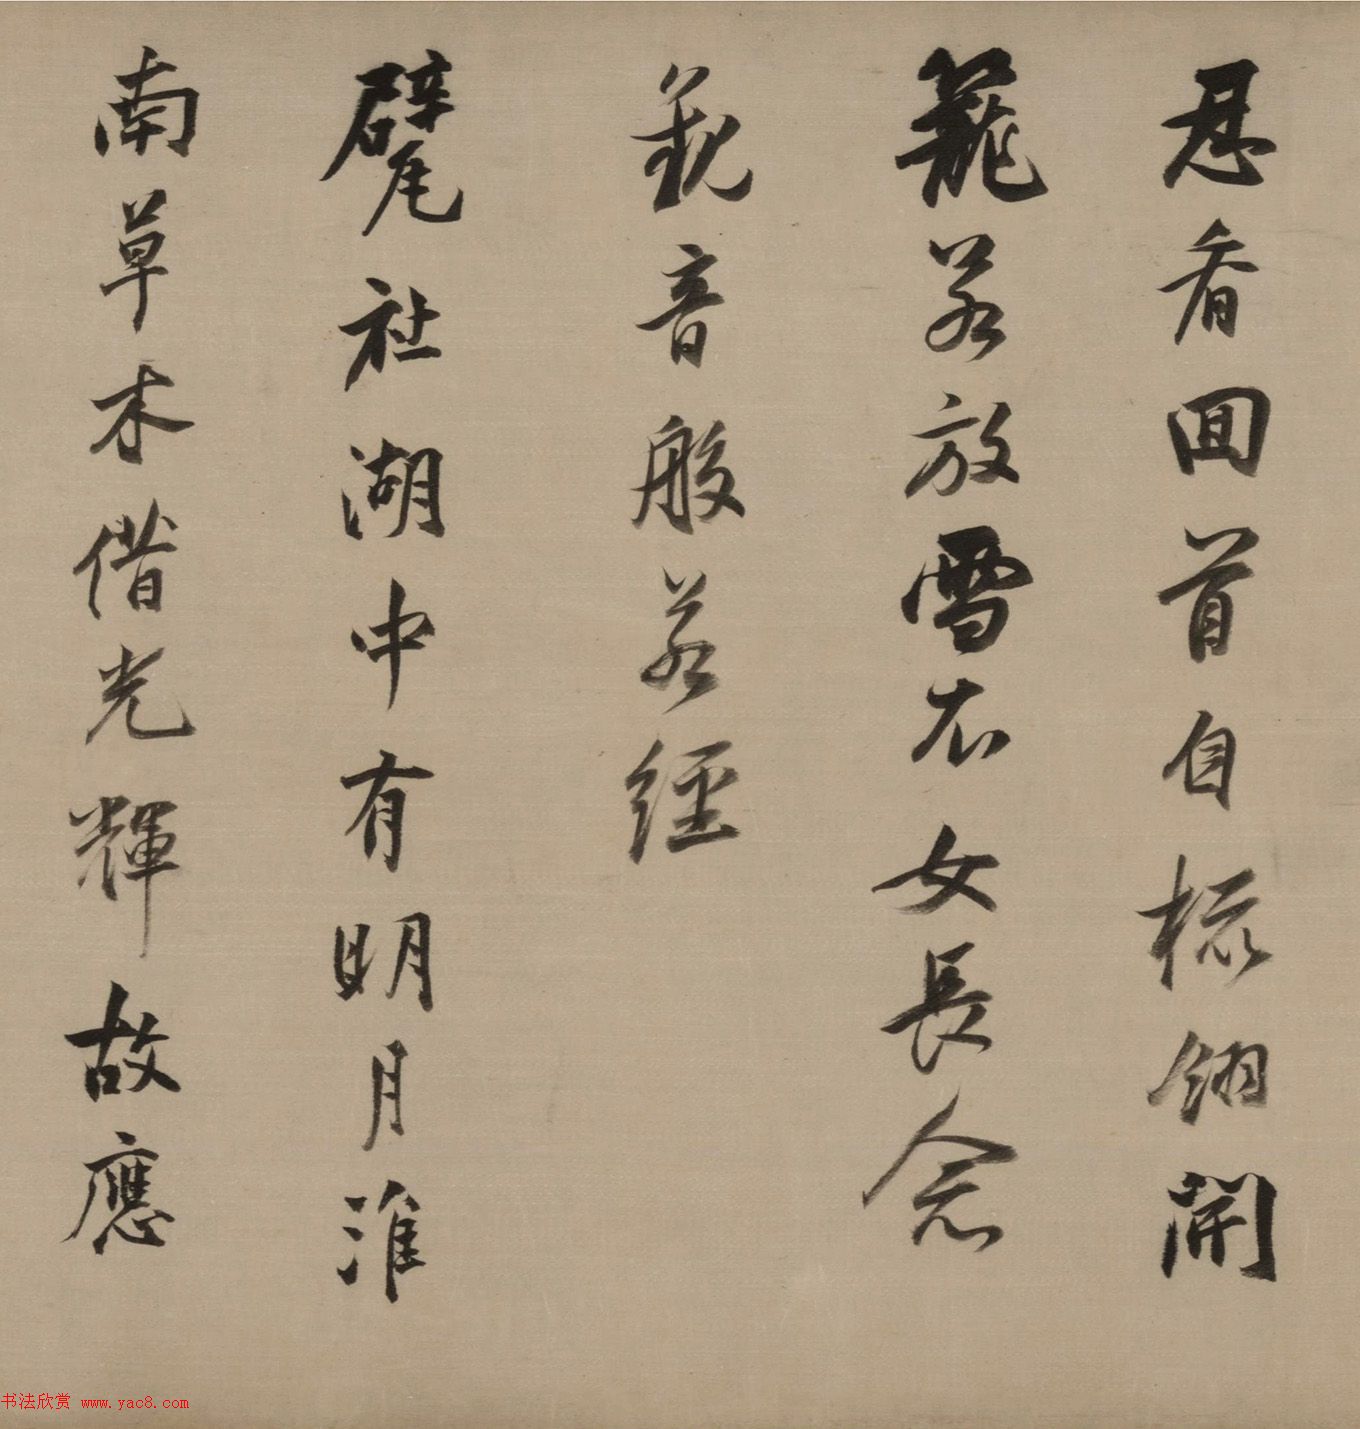 忍看回首自梳翎開
籠若放雪衣女長念
觀音般若經
甓社湖中有明月淮
南草木借光輝故應
书法欣赏 www.yac8.com